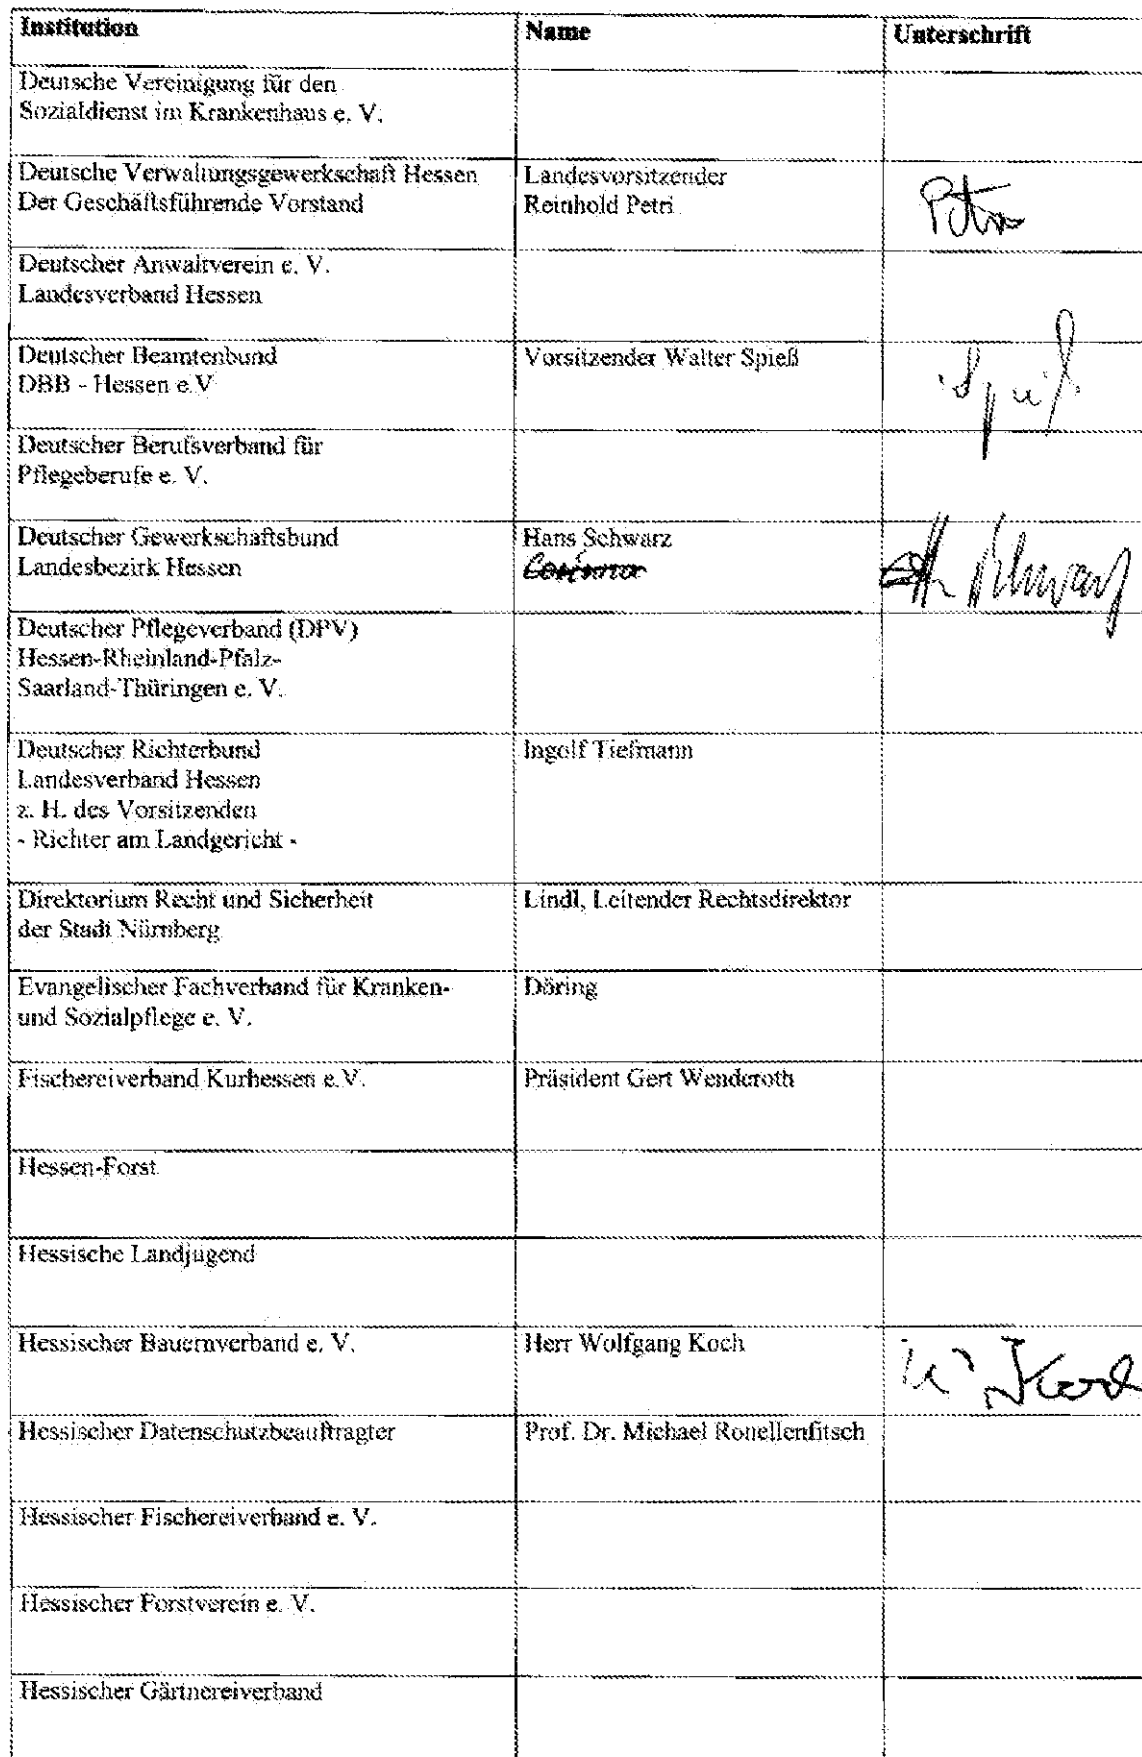 Institution Name Unterschrift
Deutsche Vereinigung für den
Sozialdienst im Krankenhaus e. V.
Deutsche Verwaltungsgewerkschaft Hessen Landesvorsitzender
Der Geschäftsführende Vorstand Reinhold Petri
Deutscher Anwaltverein e. V.
Landesverband Hessen
Deutscher Beamtenbund Vorsitzender Walter Spieß
DBB - Hessen e.V
Deutscher Berufsverband für
Pflegeberufe e. V.
Deutscher Gewerkschaftsbund Hans Schwarz
Landesbezirk Hessen
Deutscher Pflegeverband (DPV)
Hessen-Rheinland-Pfalz-
Saarland-Thüringen e. V.
Deutscher Richterbund Ingolf Tiefmann
Landesverband Hessen
z. H. des Vorsitzenden
- Richter am Landgericht -
Direktorium Recht und Sicherheit Lindl, Leitender Rechtsdirektor
der Stadt Nürnberg
Evangelischer Fachverband für Kranken- Döring
und Sozialpflege e. V.
Fischereiverband Kurhessen e.V. Präsident Gert Wenderoth
Hessen-Forst
Hessische Landjugend
Hessischer Bauernverband e. V. Herr Wolfgang Koch
Hessischer Datenschutzbeauftragter Prof. Dr. Michael Ronellenfitsch
Hessischer Fischereiverband e. V.
Hessischer Forstverein e. V.
Hessischer Gärtnereiverband